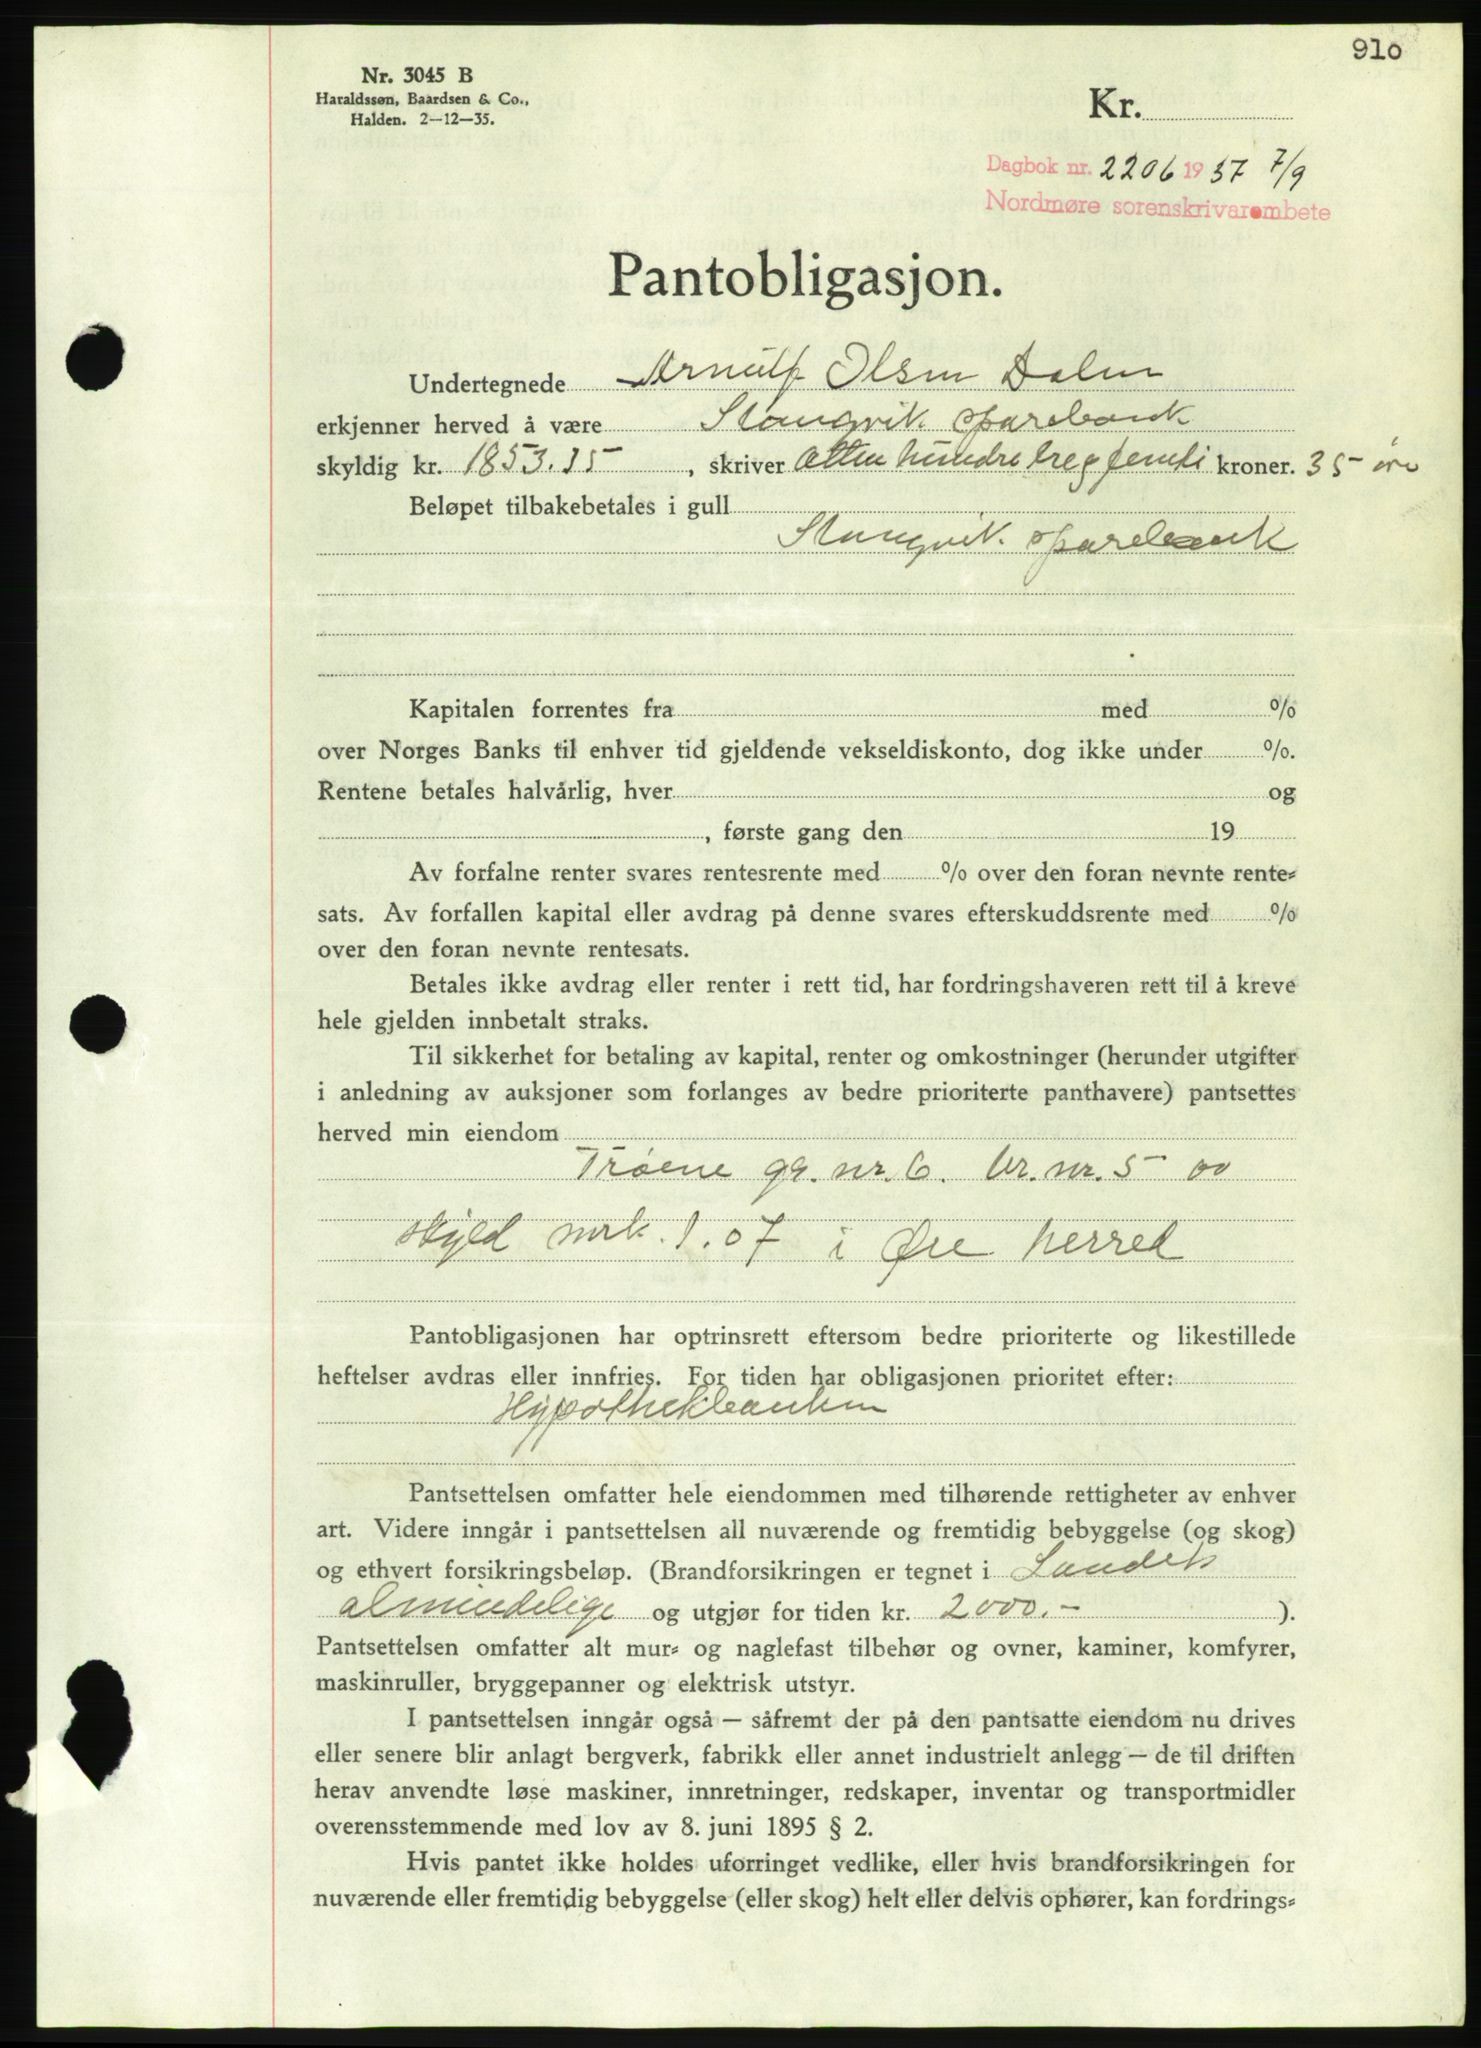 910
Nr. 3045 B
Haraldssøn, Baardsen & Co.,
Halden. 2—12—35.
Kr.
Dagbok nr. 2206 1937 7/9
Nordmøre sorenskrivarembete
Pantobligasjon.
Undertegnede Arnulf Olsen Dalen
erkjenner herved å være Stangvik sparebank
skyldig kr. 1853.35, skriver Atten hundre treogfemti kroner. 35 øre
Beløpet tilbakebetales i gull
Stangvik sparebank
Kapitalen forrentes fra med %
over Norges Banks til enhver tid gjeldende vekseldiskonto, dog ikke under %.
Rentene betales halvårlig, hver og
, første gang den 19
Av forfalne renter svares rentesrente med % over den foran nevnte rente-
sats. Av forfallen kapital eller avdrag på denne svares efterskuddsrente med %
over den foran nevnte rentesats.
Betales ikke avdrag eller renter i rett tid, har fordringshaveren rett til å kreve
hele gjelden innbetalt straks.
Til sikkerhet for betaling av kapital, renter og omkostninger (herunder utgifter
i anledning av auksjoner som forlanges av bedre prioriterte panthavere) pantsettes
herved min eiendom
Trøene gr. nr. 6. br. nr. 5 av
skyld mrk. 1.07 i Øre herred
Pantobligasjonen har optrinsrett eftersom bedre prioriterte og likestillede
heftelser avdras eller innfries. For tiden har obligasjonen prioritet efter:
Hypothekbanken
Pantsettelsen omfatter hele eiendommen med tilhørende rettigheter av enhver
art. Videre inngår i pantsettelsen all nuværende og fremtidig bebyggelse (og skog)
og ethvert forsikringsbeløp. (Brandforsikringen er tegnet i Landets
almindelige og utgjør for tiden kr. 2000.- ).
Pantsettelsen omfatter alt mur- og naglefast tilbehør og ovner, kaminer, komfyrer,
maskinruller, bryggepanner og elektrisk utstyr.
I pantsettelsen inngår også — såfremt der på den pantsatte eiendom nu drives
eller senere blir anlagt bergverk, fabrikk eller annet industrielt anlegg — de til driften
herav anvendte løse maskiner, innretninger, redskaper, inventar og transportmidler
overensstemmende med lov av 8. juni 1895 § 2.
Hvis pantet ikke holdes uforringet vedlike, eller hvis brandforsikringen for
nuværende eller fremtidig bebyggelse (eller skog) helt eller delvis ophører, kan fordrings-